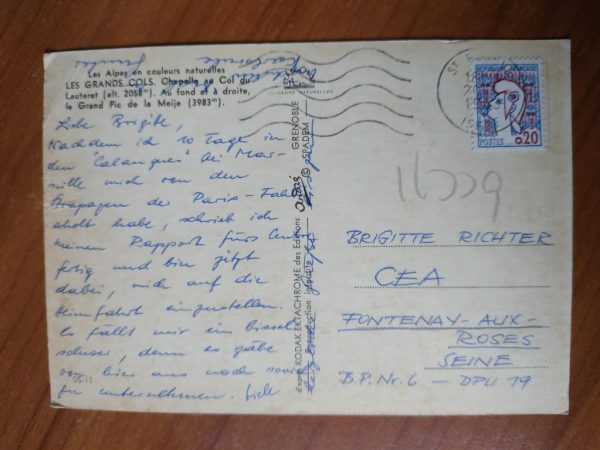 Les Alpes en couleurs naturelles
LES GRANDS COLS. Chapelle au Col du
Lautaret (alt. 2058m). Au fond et à droite,
le Grand Pic de la Meije (3983m).
Liebe Brigitte,
Nachdem ich 10 Tage in
den "Calanques" bei Mar-
seille mich von den
Strapazen der Paris-
erholt habe, schrieb ich
meinen Rapport fürs
fertig und bin jetzt
dabei, mich auf die
Heimfahrt einzustellen.
Es fällt mir ein bissel
schwer, denn es gäbe
von hier aus noch soviel
zu unternehmen.
05-11
d'après KODAK EKTACHROME des Editions
GRENOBLE
© SPADEM
COULEURS NATURELLES
POSTES
0,20
BRIGITTE RICHTER
CEA
FONTENAY-AUX-
ROSES
SEINE
B.P. Nr. 6 - DPU 19